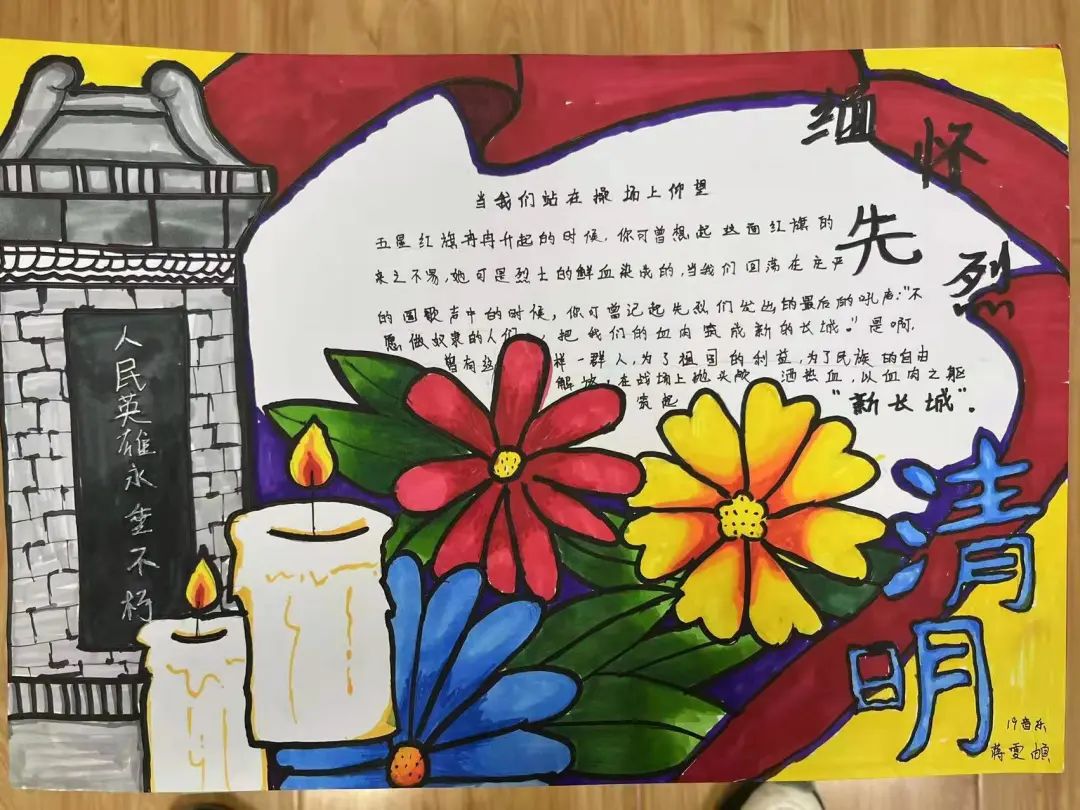 缅怀先烈
当我们站在操场上仰望
五星红旗冉冉升起的时候，你可曾想起这面红旗的
来之不易，她可是烈士的鲜血染成的，当我们回荡在庄严
的国歌声中的时候，你可曾记起先烈们发出的最后的吼声："不
愿做奴隶的人们，把我们的血肉筑成新的长城。"是啊，
曾有这样一群人，为了祖国的利益，为了民族的自由
解放，在战场上抛头颅 洒热血，以血肉之躯
筑起"新长城"。
人民英雄永垂不朽
清明
19音乐
蒋雯